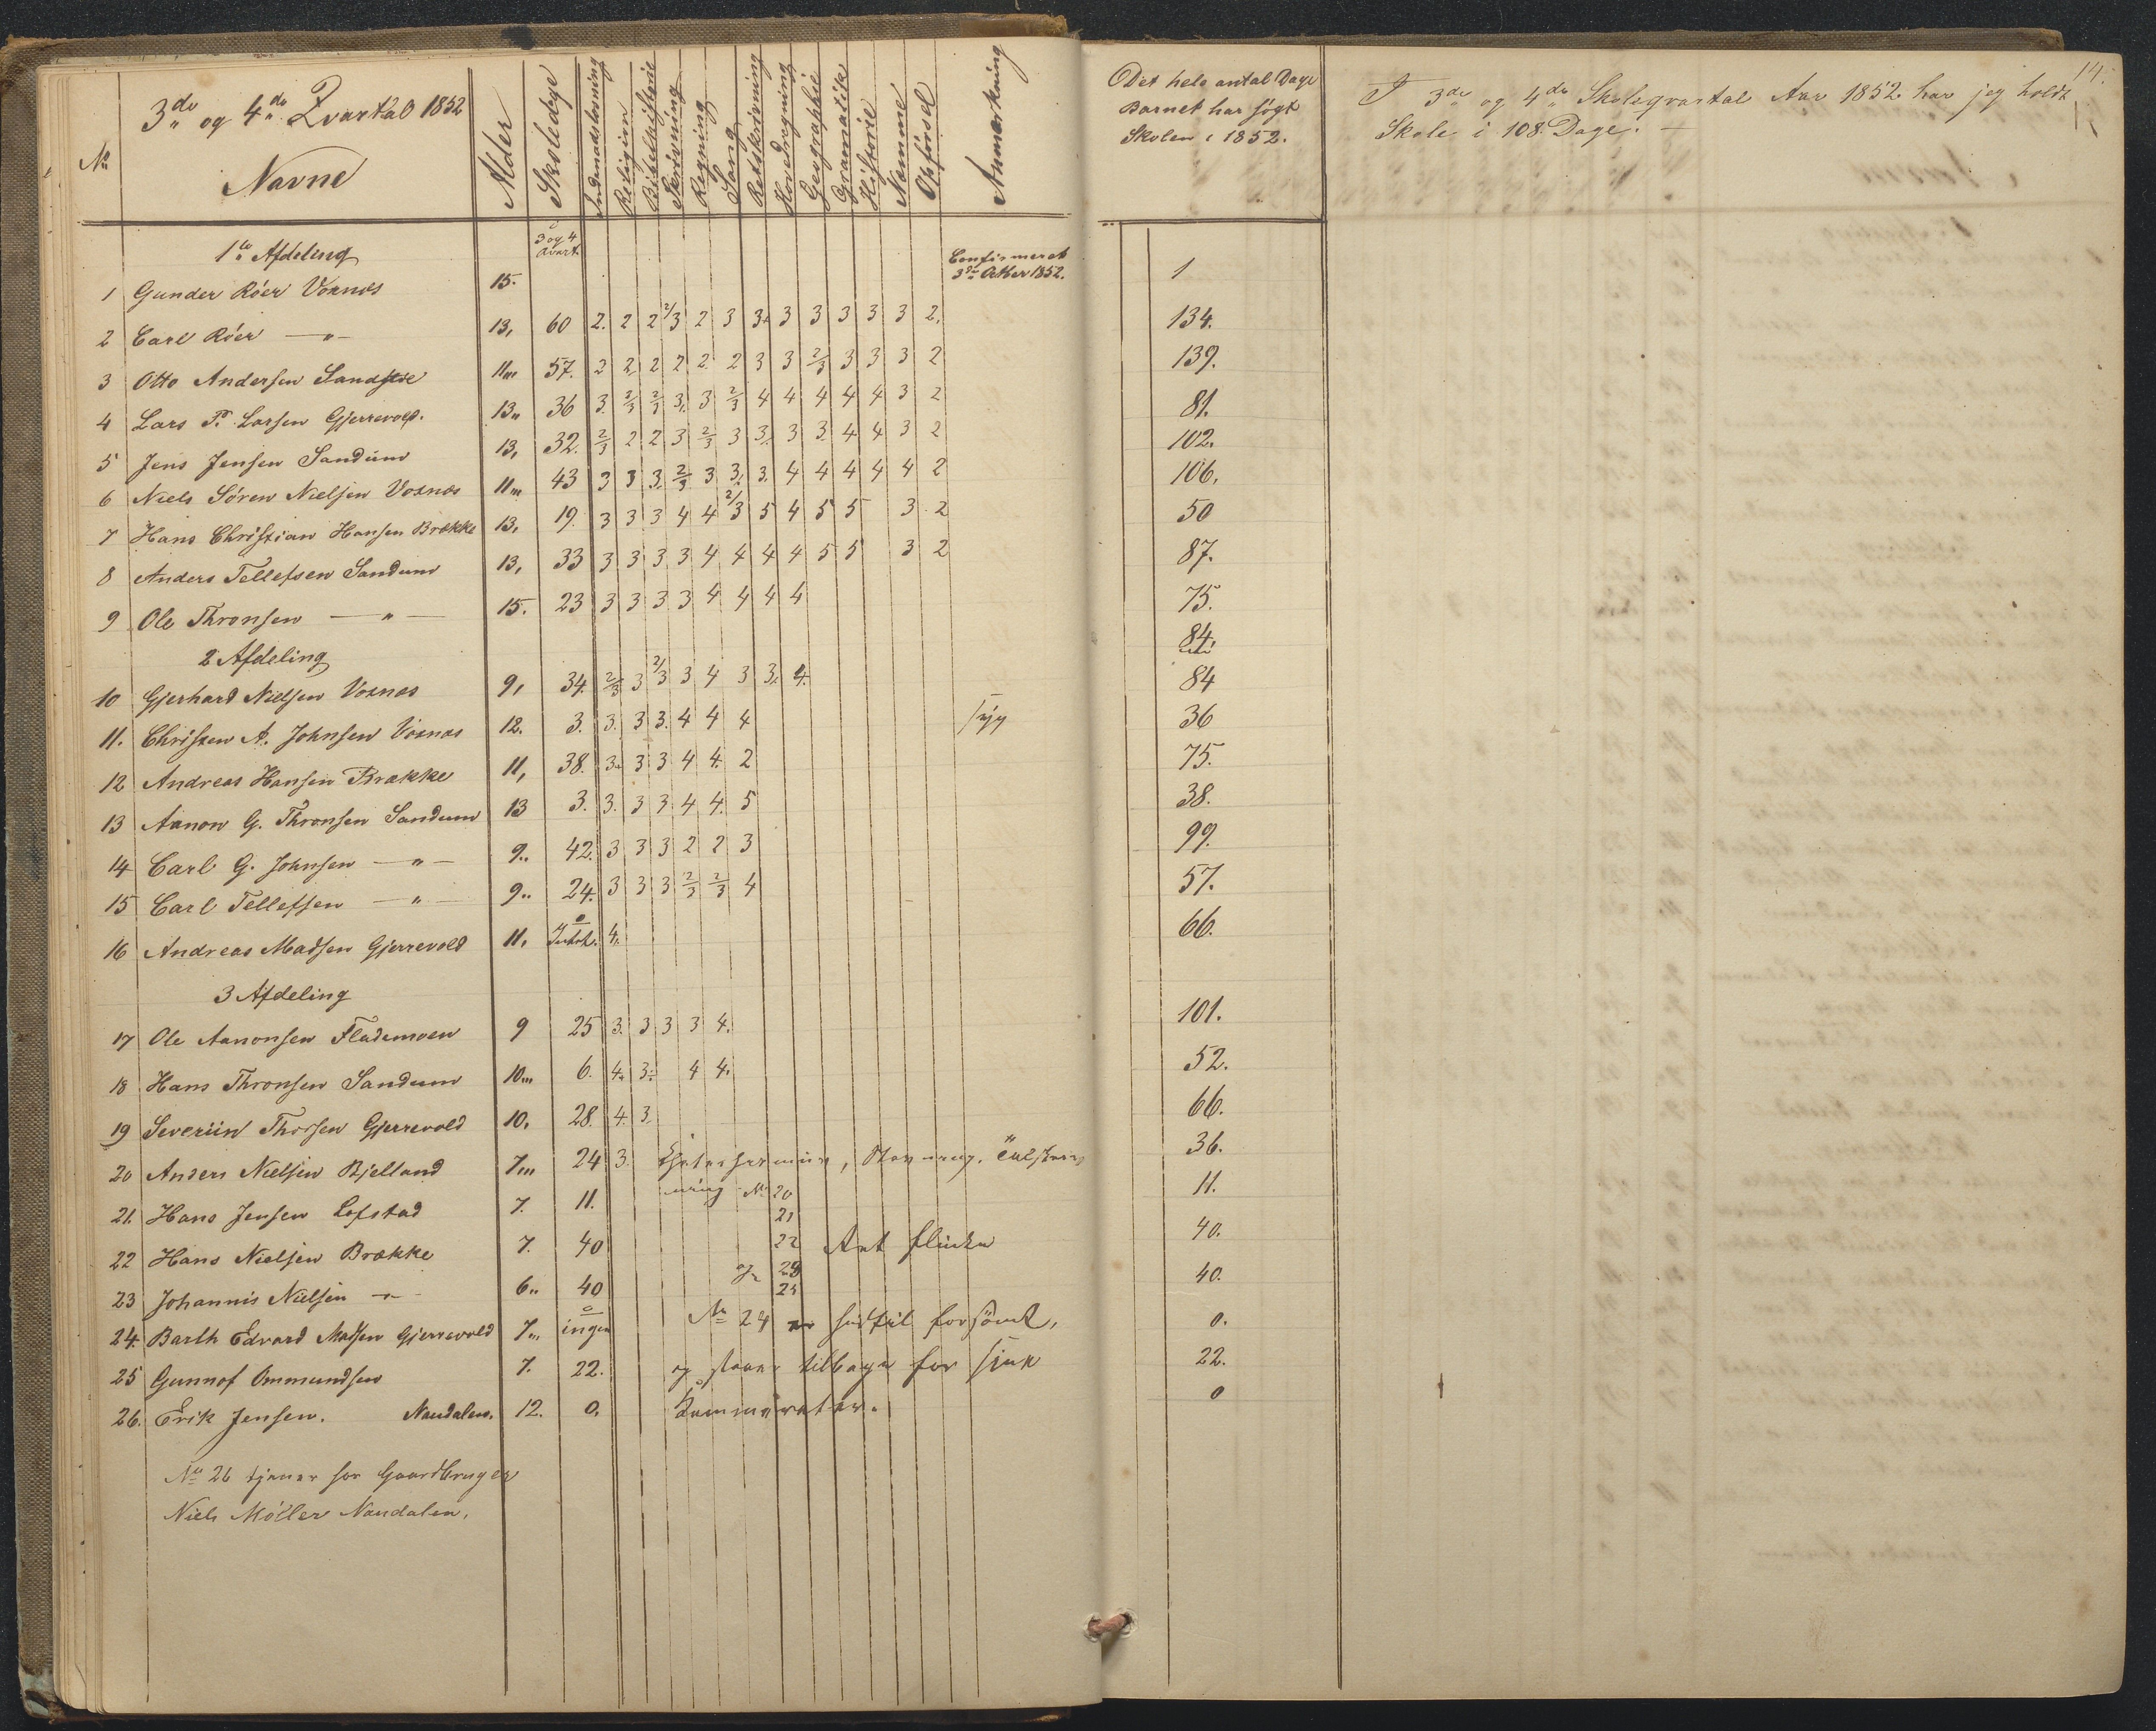 3de og 4de Qvartal 1852
No Navne Alder Skoledage Indenadslæsning Religion Bibelhistorie Skrivning Regning Sang Retskrivning Hovedregning Geographie Gramatikk Historie Nemme Opførsel Anmærkning
3 og 4 Qvart.
1te Afdeling
1 Gunder Röer Voxnæs 15. Confirmeret 3die Octber 1852.
2 Carl Röer —"— 13, 60 2. 2 2 2/3 2 3 3. 3 3 3 3 3 2.
3 Otto Andersen 11 57. 2 2 2 2 2 2 3 3 2/3 3 3 3 2
4 Lars P. Larsen Gjerrevold. 13 36 3. 2/3 2/3 3. 3 2/3 4 4 4 4 4 3 2
5 Jens Jensen Sandum 13, 32. 2/3 2 2 3 2/3 3 3. 3 3. 4 4 3 2
6 Niels Sören Nielsen Voxnæs 11 43 3 3 3. 2/3 3 3. 3. 4 4 4 4 4 2
7 Hans Christian Hansen Brække 13, 19. 3 3 3 4 4 2/3 5 4 5 5 3 2
8 Anders Tellefsen Sandum 13, 33 3 3 3 3 4 4 4 4 5 5 3 2
9 Ole Thronsen —"— 15. 23 3 3 3 3 4 4 4 4
2 Afdeling
10 Gjerhard Nielsen Voxnæs 9, 34. 2/3 3 2/3 3 4 3 3. 4.
11. Christen A. Johnsen Voxnæs 12. 3. 3. 3 3. 4 4 4 syg
12 Andreas Hansen Brække 11, 38. 3. 3 3 4 4. 2
13 Aanon G. Thronsen Sandum 13 3. 3. 3 3 4 4. 5
14 Carl G. Johnsen —"— 9.. 42. 3 3 3 2 2 3
15 Carl Tellefsen —"— 9.. 24. 3 3 3 2/3 2/3 4
16 Andreas Madsen Gjerrevold 11. 0 4.
3 Afdeling
17 Ole Aanonsen Flademoen 9 25 3. 3 3 3 4.
18 Hans Thronsen Sandum 10 6. 4. 3. 4 4.
19 Severiin Thorsen Gjerrevold 10. 28. 4. 3.
20 Anders Nielsen Bjelland 7 24 3.
21. Hans Jensen Lofstad 7. 11. No 20
21
22 Hans Nielsen Brække 7. 40 22
23 Johannis Nielsen —"— 6.. 40 25
24. Barth Edvard Madsen Gjerrevold 7 0 ingen No 24 er hidtil forsömt,
25 Gunnof Ommundsen 7. 22. og staaer tilbage for sine
26. Erik Jensen. Naudalen. 12. 0. Kammerater.
No 26 tjener for Gaardbruger
Niels Möller Naudalen.
14.
Det hele antal Dage
Barnet har søgt
Skolen i 1852.
I 3de og 4de Skoleqvartal Aar 1852 har jeg holdt
Skole i 108 Dage. —
1
134.
139.
81.
102.
106.
50
87.
75.
84.
84
36
75.
38.
99.
57.
66.
101.
52.
66.
36.
11.
40.
40.
0.
22.
0